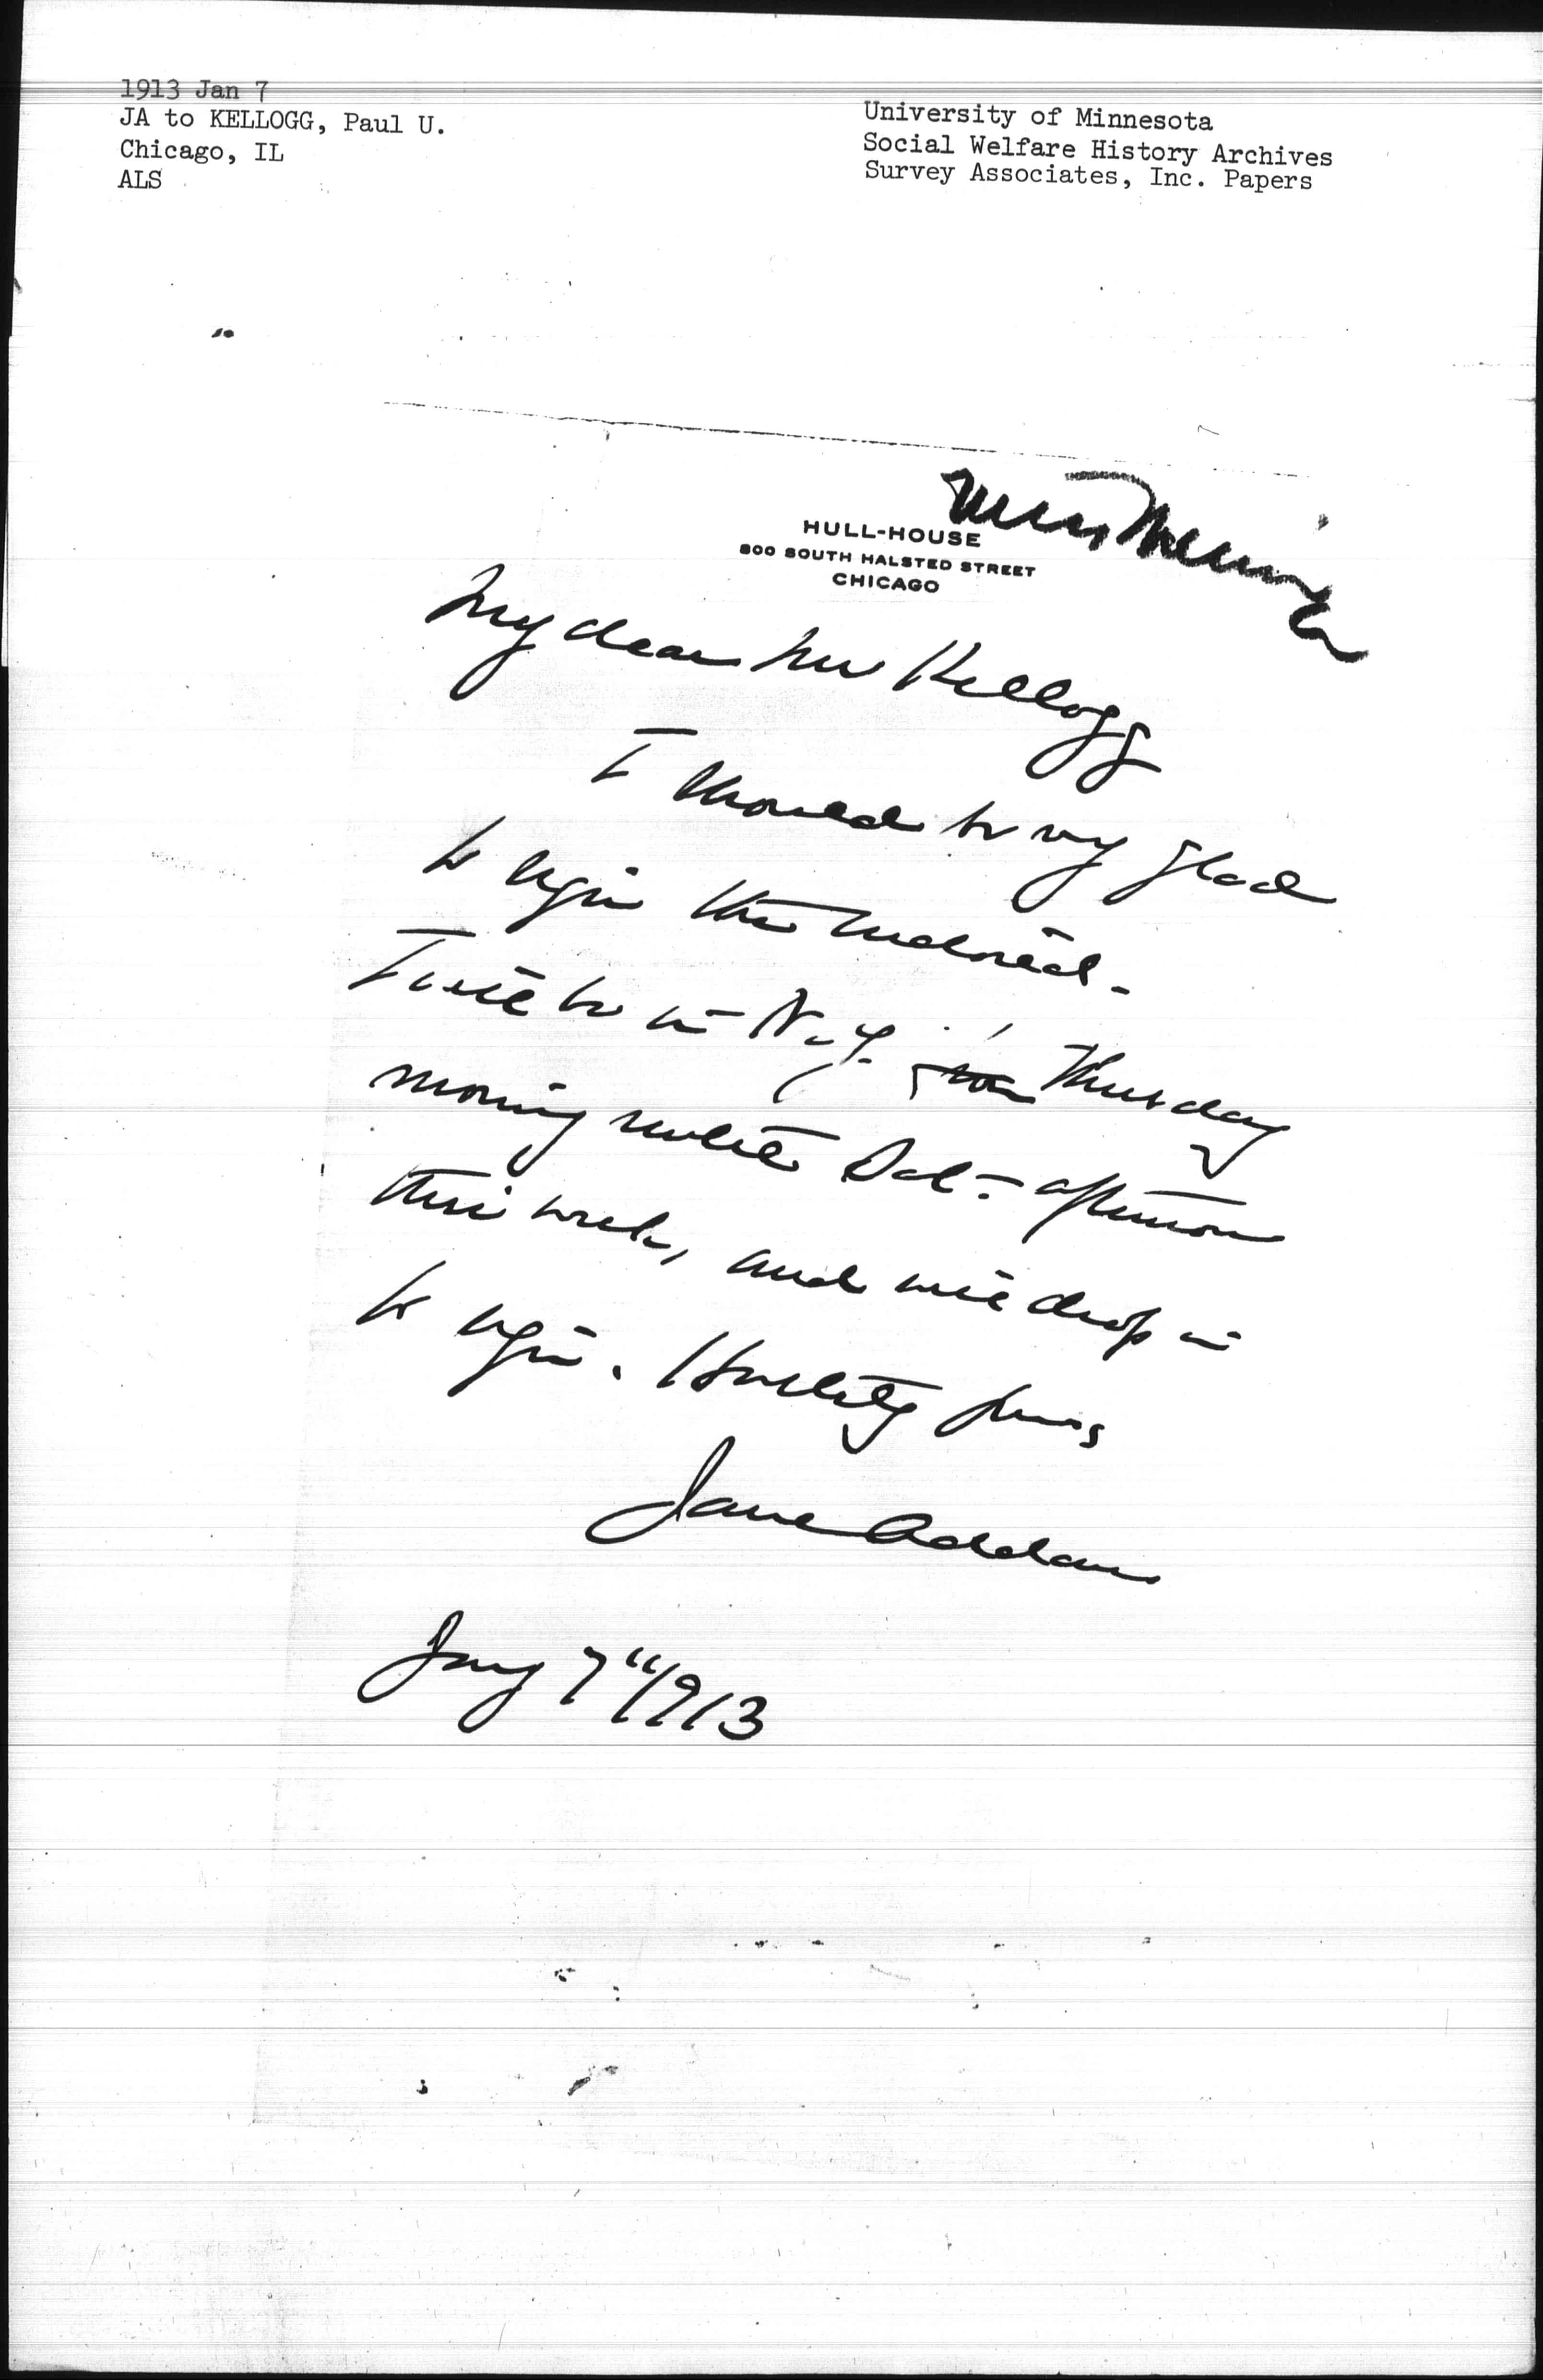 1913 Jan 7
JA to KELLOGG, Paul U.
Chicago, IL
ALS
University of Minnesota
Social Welfare History Archives
Survey Associates, Inc. Papers
Miss
HULL-HOUSE
800 SOUTH HALSTED STREET
CHICAGO
My dear Mr Kellogg
I should be very glad
to sign the
I will be in N.Y. Thursday
morning until Sat- afternoon
this week, and will drop in
to sign. Heartily yours
Jane Addams
Jany 7" 1913